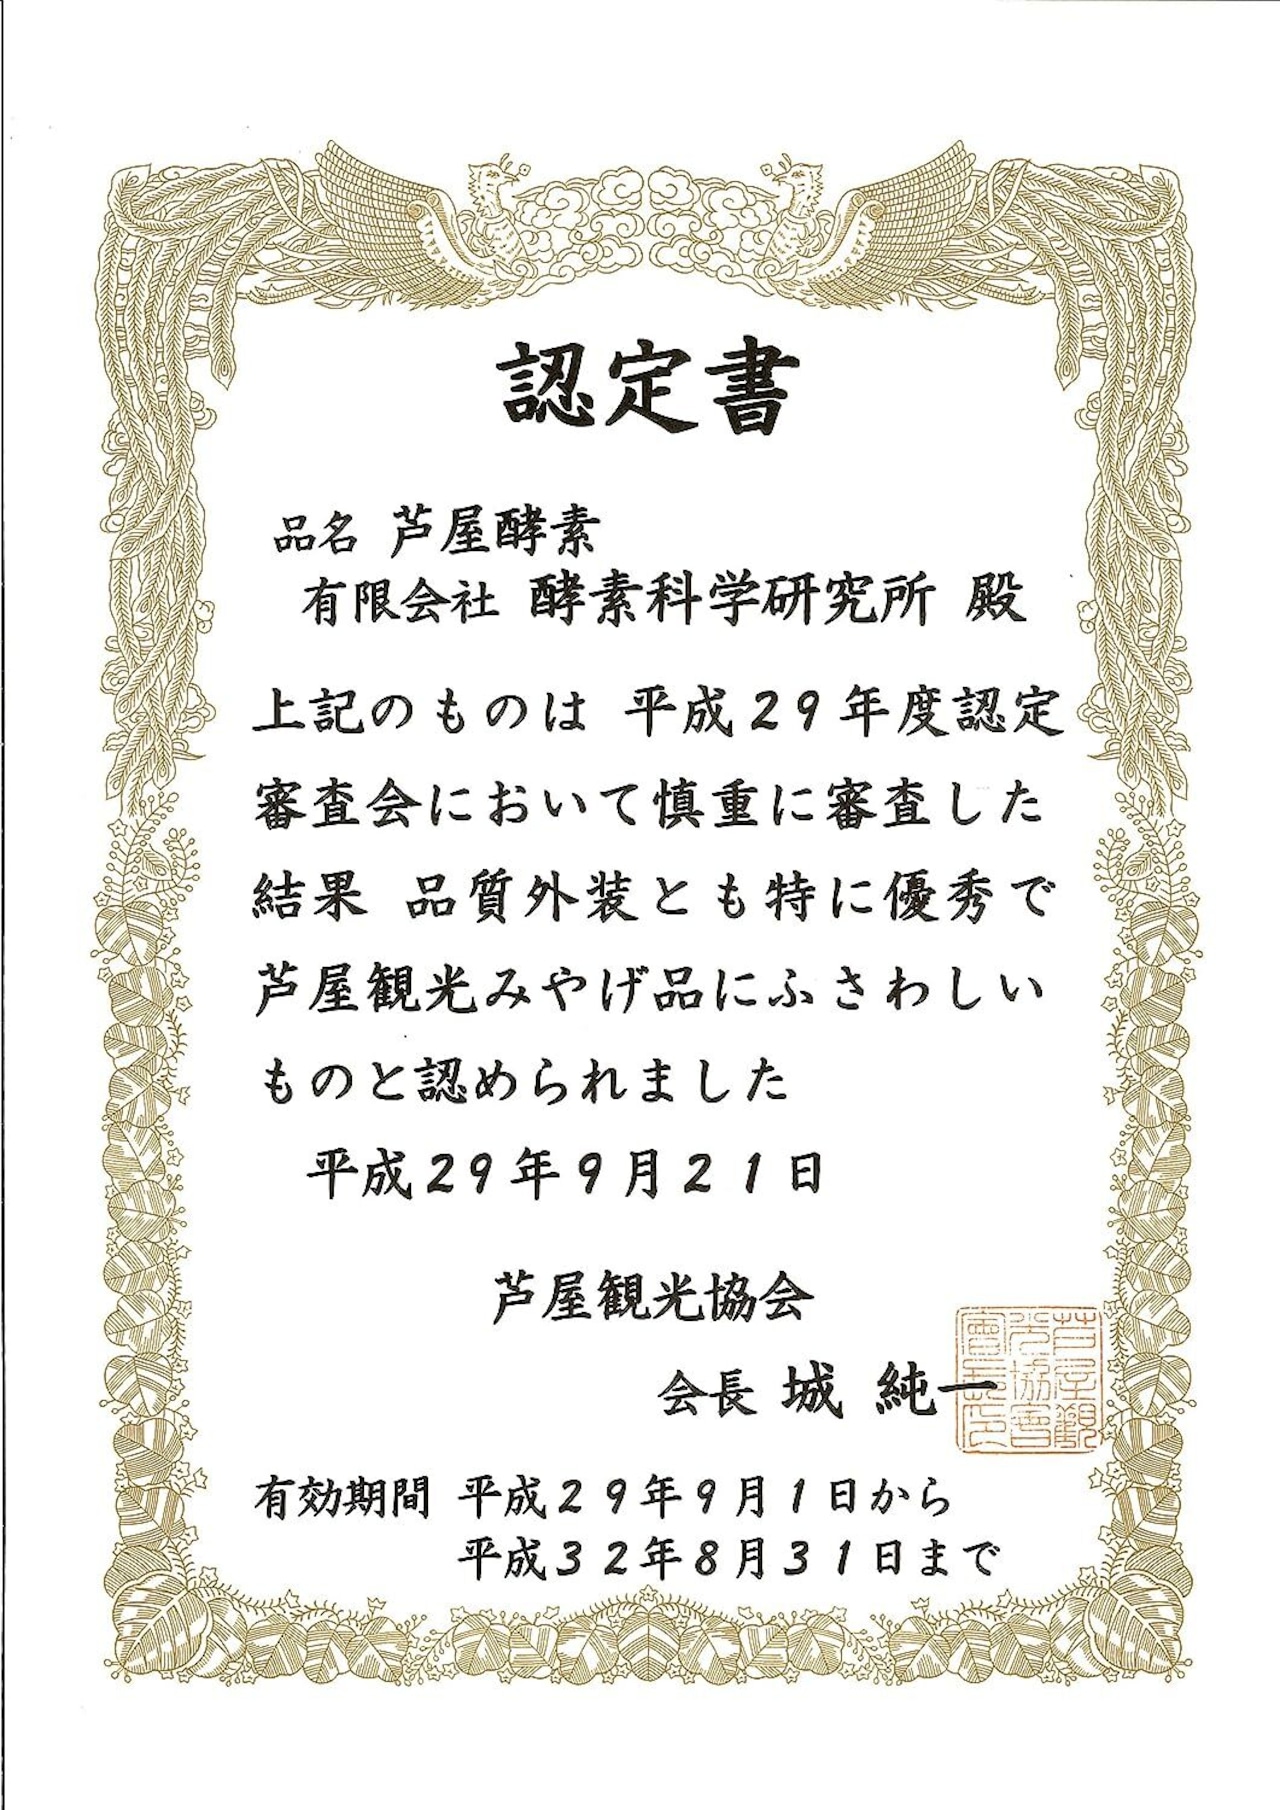 認定書
品名 芦屋酵素
有限会社 酵素科学研究所 殿
上記のものは 平成29年度認定
審査会において慎重に審査した
結果 品質外装とも特に優秀で
芦屋観光みやげ品にふさわしい
ものと認められました
平成29年9月21日
芦屋観光協会
会長 城 純一
芦屋観
光協會
會長之印
有効期間 平成29年9月1日から
平成32年8月31日まで